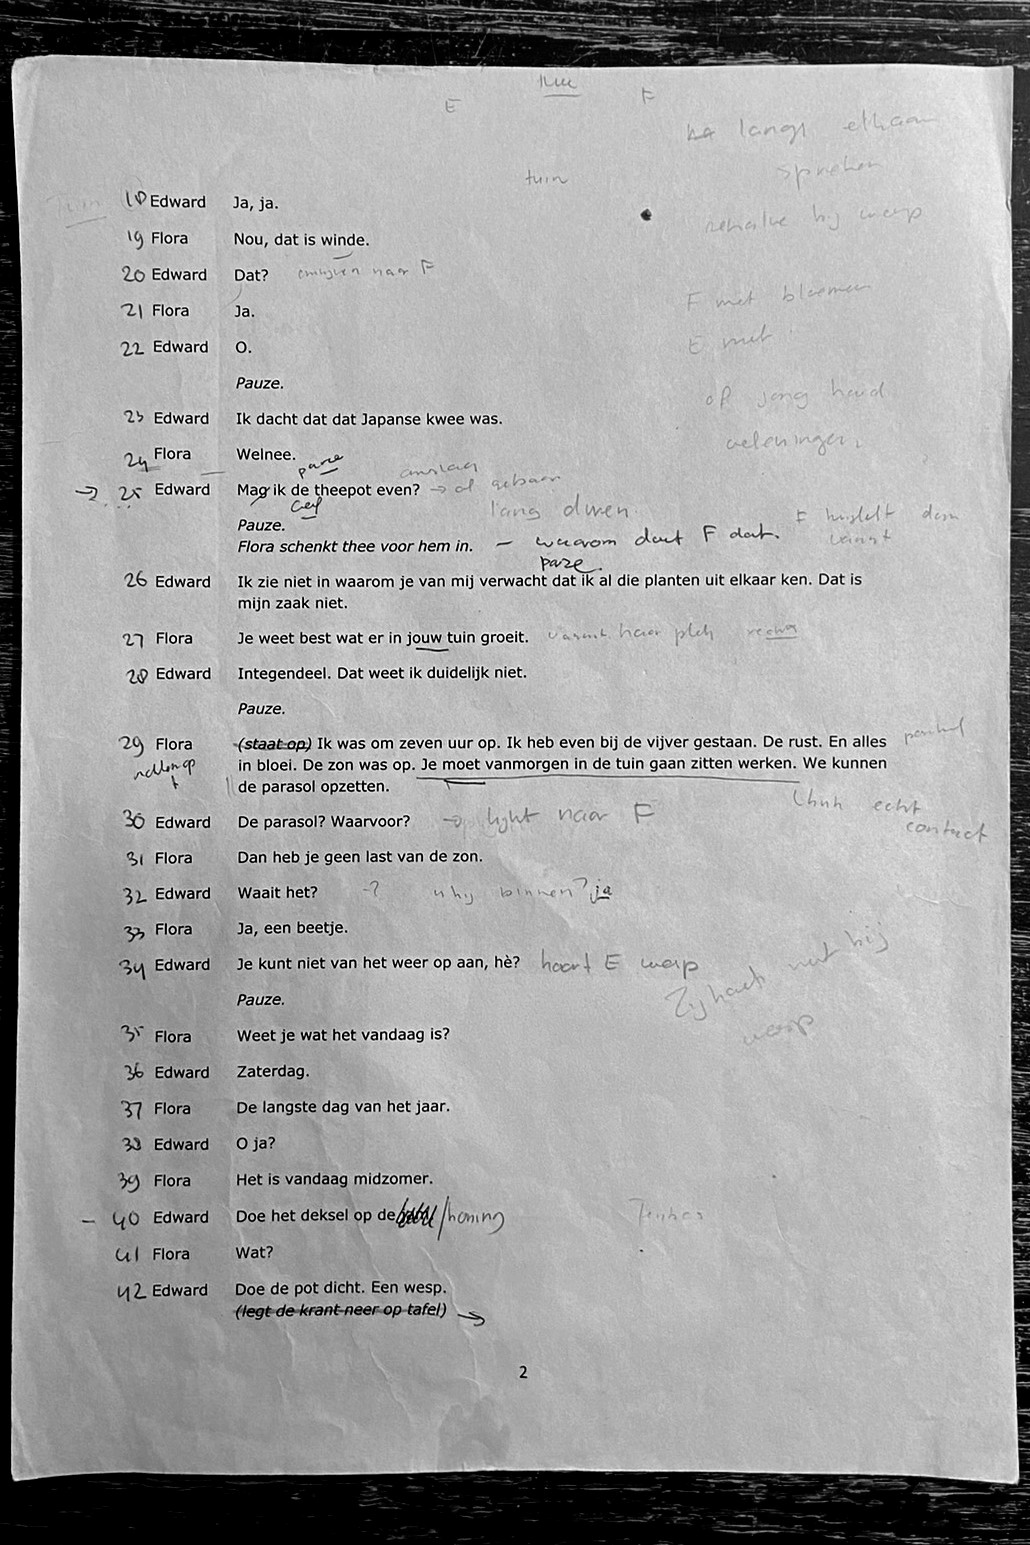 E
F
langs elkaar
spreken
tuin
18 Edward Ja, ja.
bij wesp
19 Flora Nou, dat is winde.
20 Edward Dat? naar F
F met bloemen
21 Flora Ja.
E met
22 Edward O.
Pauze.
op jong
23 Edward Ik dacht dat dat Japanse kwee was.
24 Flora Welnee.
pauze
→ 25 Edward Mag ik de theepot even? → of gebaar
lang duren
Pauze.
Flora schenkt thee voor hem in. – waarom doet F dat.
pauze.
26 Edward Ik zie niet in waarom je van mij verwacht dat ik al die planten uit elkaar ken. Dat is
mijn zaak niet.
27 Flora Je weet best wat er in jouw tuin groeit. haar plek
28 Edward Integendeel. Dat weet ik duidelijk niet.
Pauze.
29 Flora (staat op) Ik was om zeven uur op. Ik heb even bij de vijver gestaan. De rust. En alles
in bloei. De zon was op. Je moet vanmorgen in de tuin gaan zitten werken. We kunnen
de parasol opzetten.
echt
contact
30 Edward De parasol? Waarvoor? → naar F
31 Flora Dan heb je geen last van de zon.
32 Edward Waait het? -? binnen? ja
33 Flora Ja, een beetje.
34 Edward Je kunt niet van het weer op aan, hè? hoort E wesp
Zij hoort niet bij
wesp
Pauze.
35 Flora Weet je wat het vandaag is?
36 Edward Zaterdag.
37 Flora De langste dag van het jaar.
38 Edward O ja?
39 Flora Het is vandaag midzomer.
– 40 Edward Doe het deksel op de /honing
41 Flora Wat?
42 Edward Doe de pot dicht. Een wesp.
(legt de krant neer op tafel) →
2